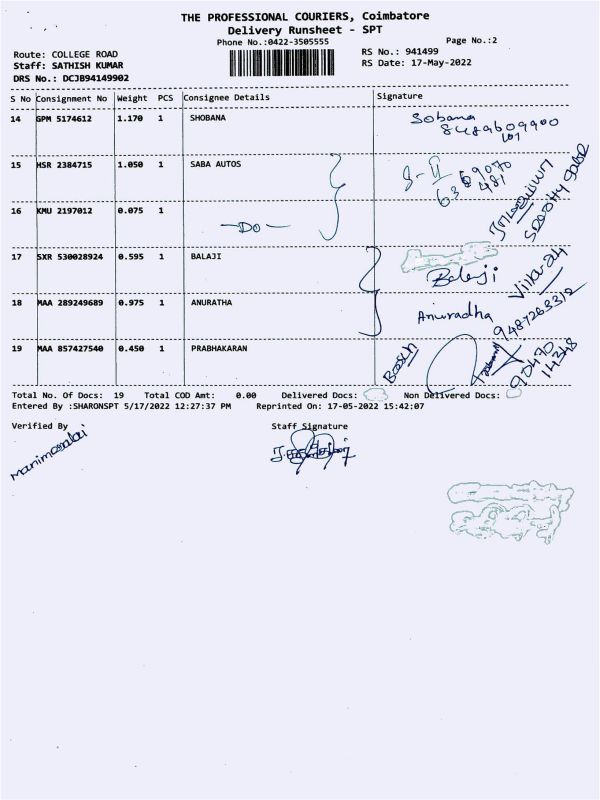 THE PROFESSIONAL COURIERS, Coimbatore
Delivery Runsheet - SPT
Phone No.:0422-3505555
Page No.:2
Route: COLLEGE ROAD
RS No.: 941499
Staff: SATHISH KUMAR
RS Date: 17-May-2022
DRS No.: DCJB94149902
S No Consignment No Weight PCS Consignee Details Signature
14 GPM 5174612 1.170 1 SHOBANA Sobana
8489609900
15 HSR 2384715 1.050 1 SABA AUTOS
16 KMU 2197012 0.075 1
-DO-
17 SXR 530028924 0.595 1 BALAJI Balaji
18 MAA 289249689 0.975 1 ANURATHA Anuradha
9487263312
19 MAA 857427540 0.450 1 PRABHAKARAN
90470
14348
Total No. Of Docs: 19 Total COD Amt: 0.00 Delivered Docs: Non Delivered Docs:
Entered By :SHARONSPT 5/17/2022 12:27:37 PM Reprinted On: 17-05-2022 15:42:07
Verified By Staff Signature